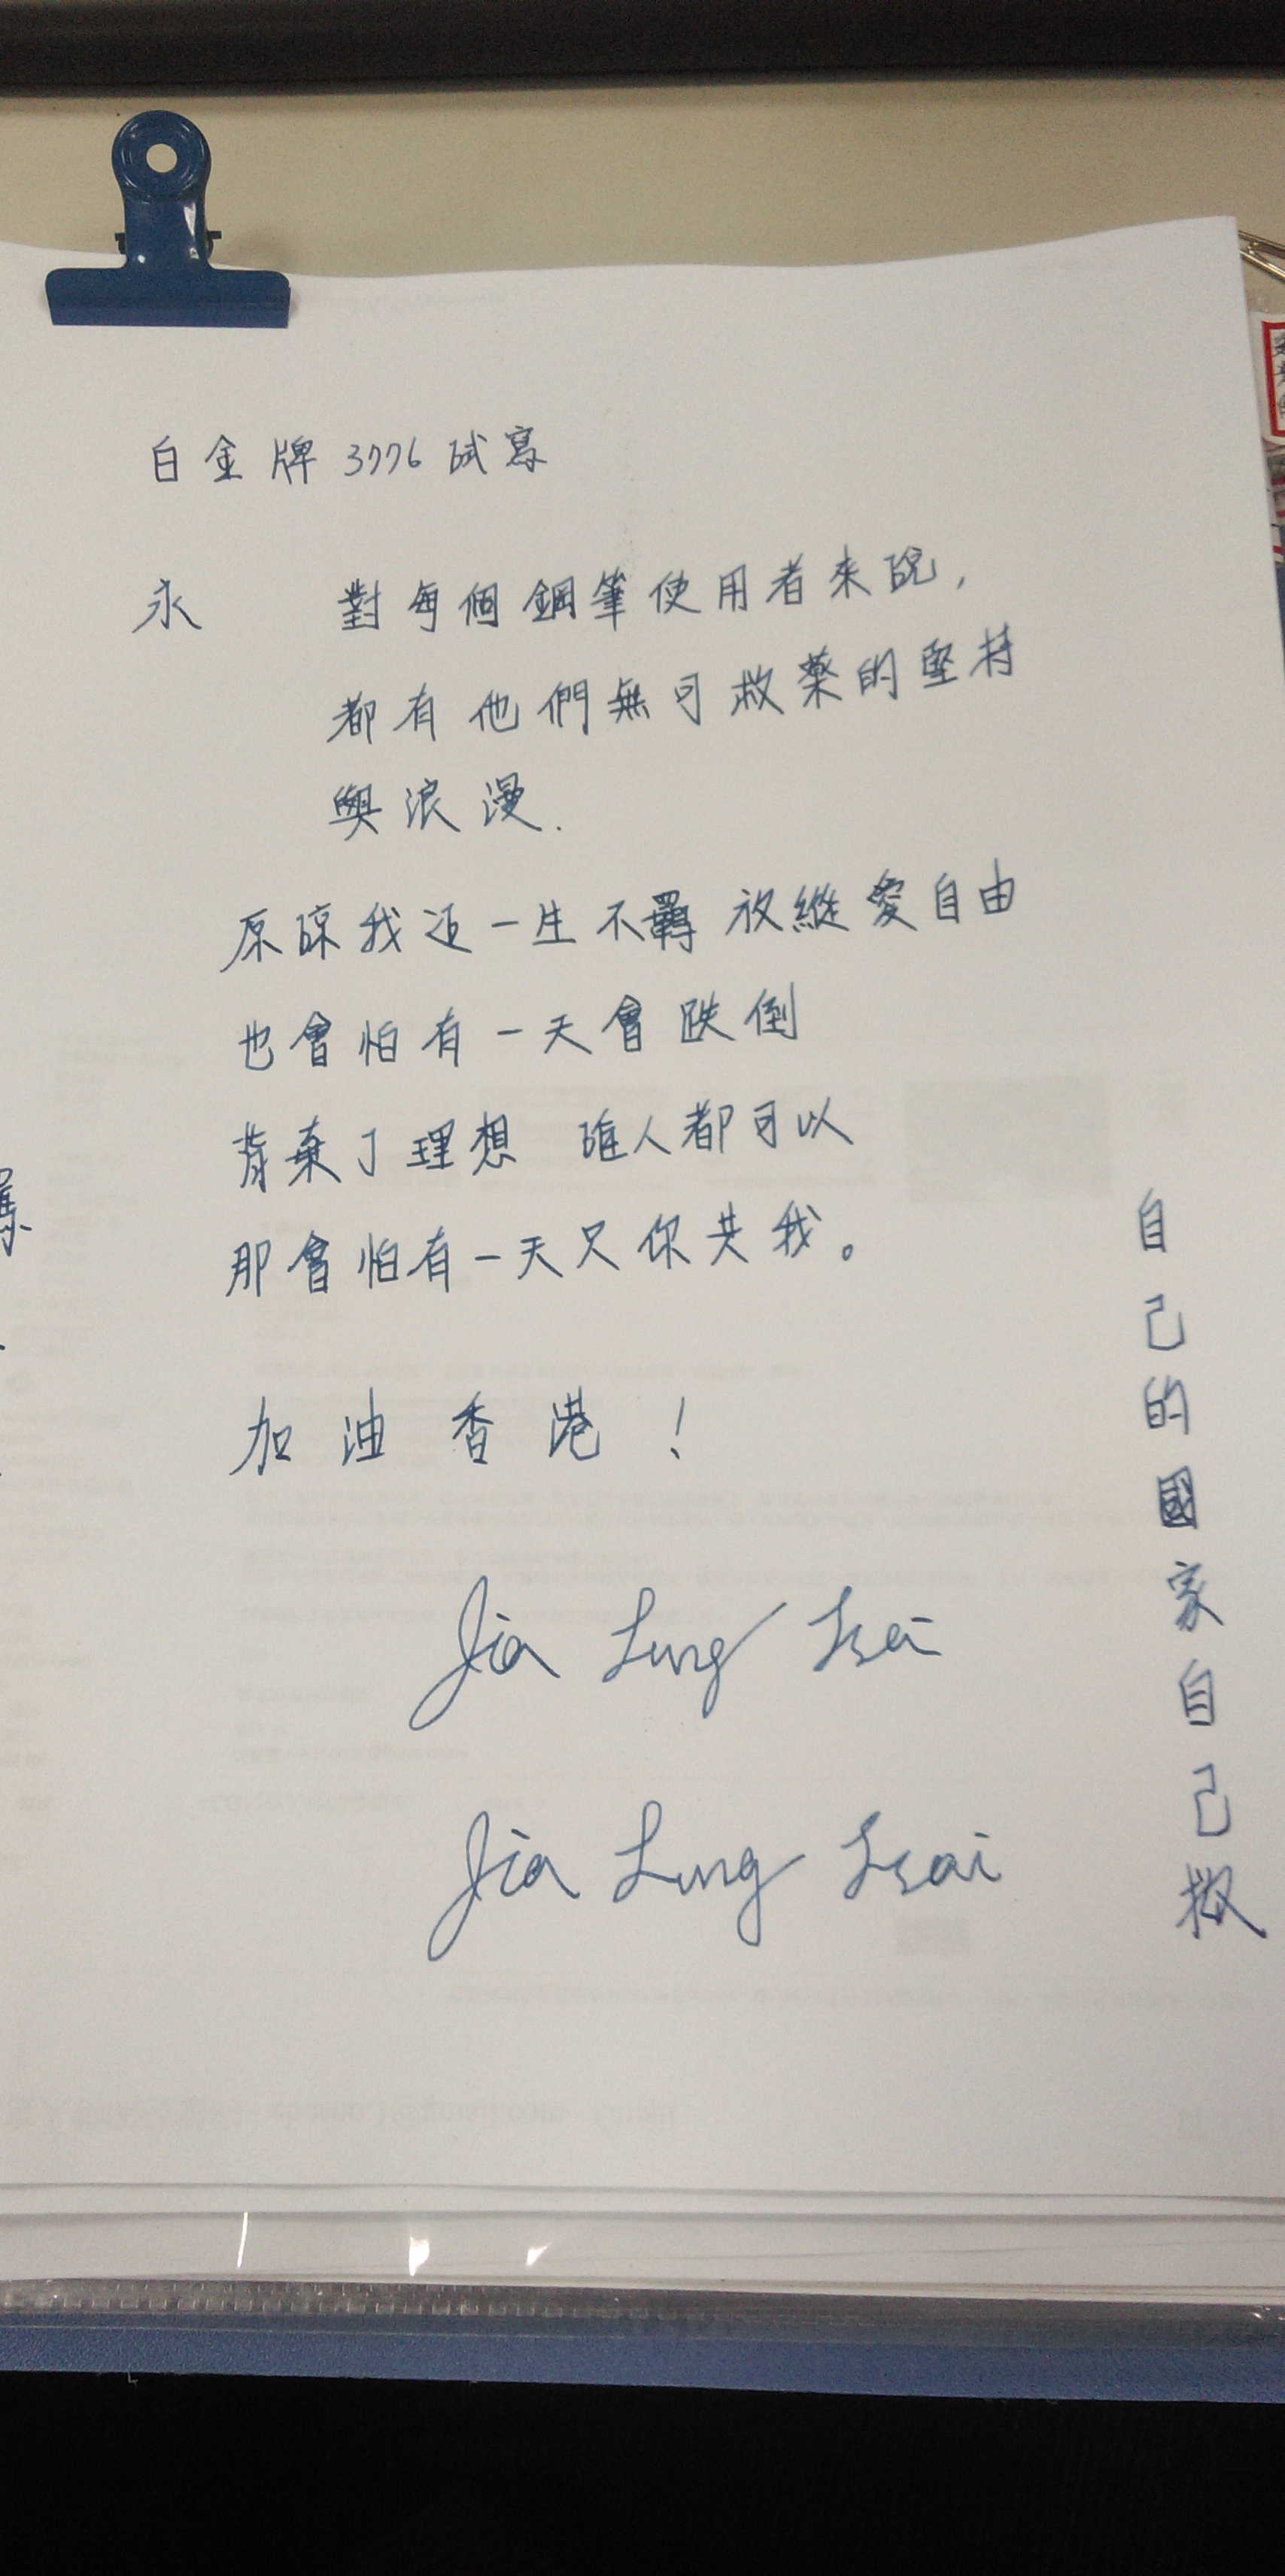 白金牌 3776 試寫
永
對每個鋼筆使用者來說,
都有他們無可救藥的堅持
與浪漫.
原諒我這一生不羈 放縱愛自由
也會怕有一天會跌倒
背棄了理想 誰人都可以
那會怕有一天只你共我。
加油香港!
Jia Ling Tsai
Jia Ling Tsai
自己的國家自己救